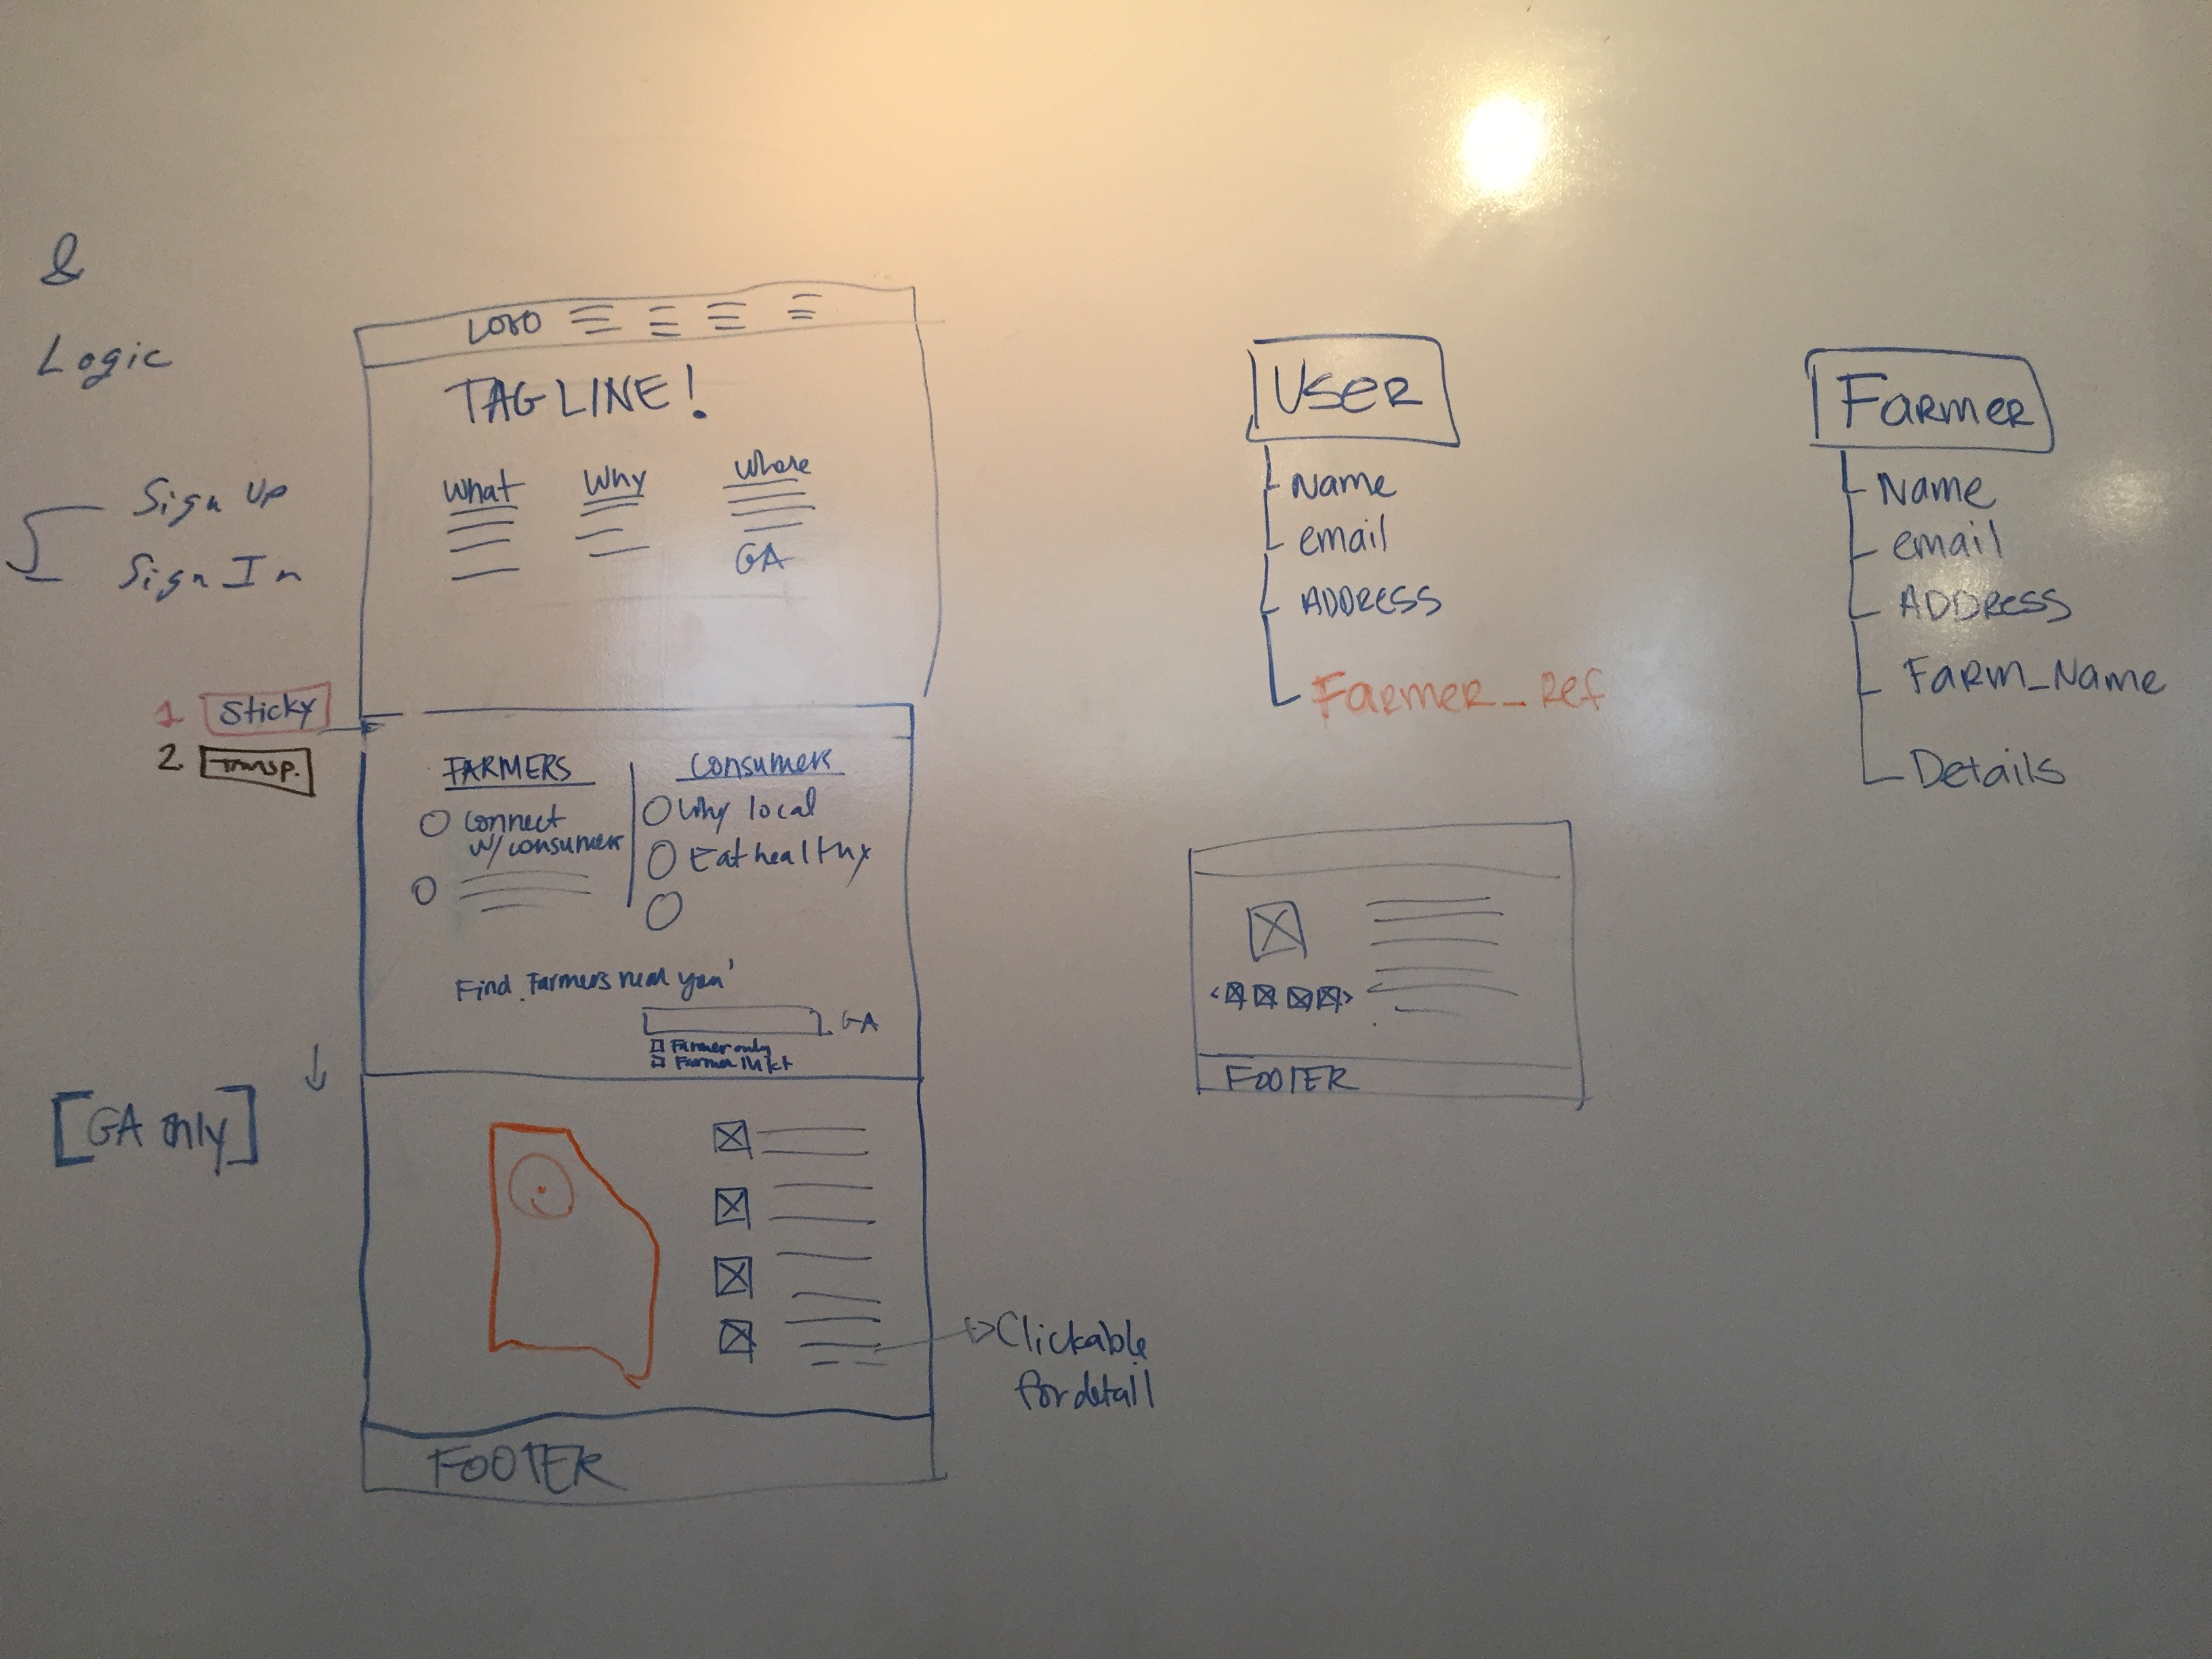 &
Logic
Sign Up
Sign In
1. Sticky
2. Transp.
[GA only]
LOGO
TAGLINE!
What
Why
Where
GA
FARMERS
Connect
w/consumers
Consumers
Why local
Eat healthy
Find Farmers near you'
GA
Farmer only
Farmer Mkt
Clickable
for detail
FOOTER
USER
Name
email
ADDRESS
Farmer_Ref
FOOTER
Farmer
Name
email
ADDRESS
Farm_Name
Details